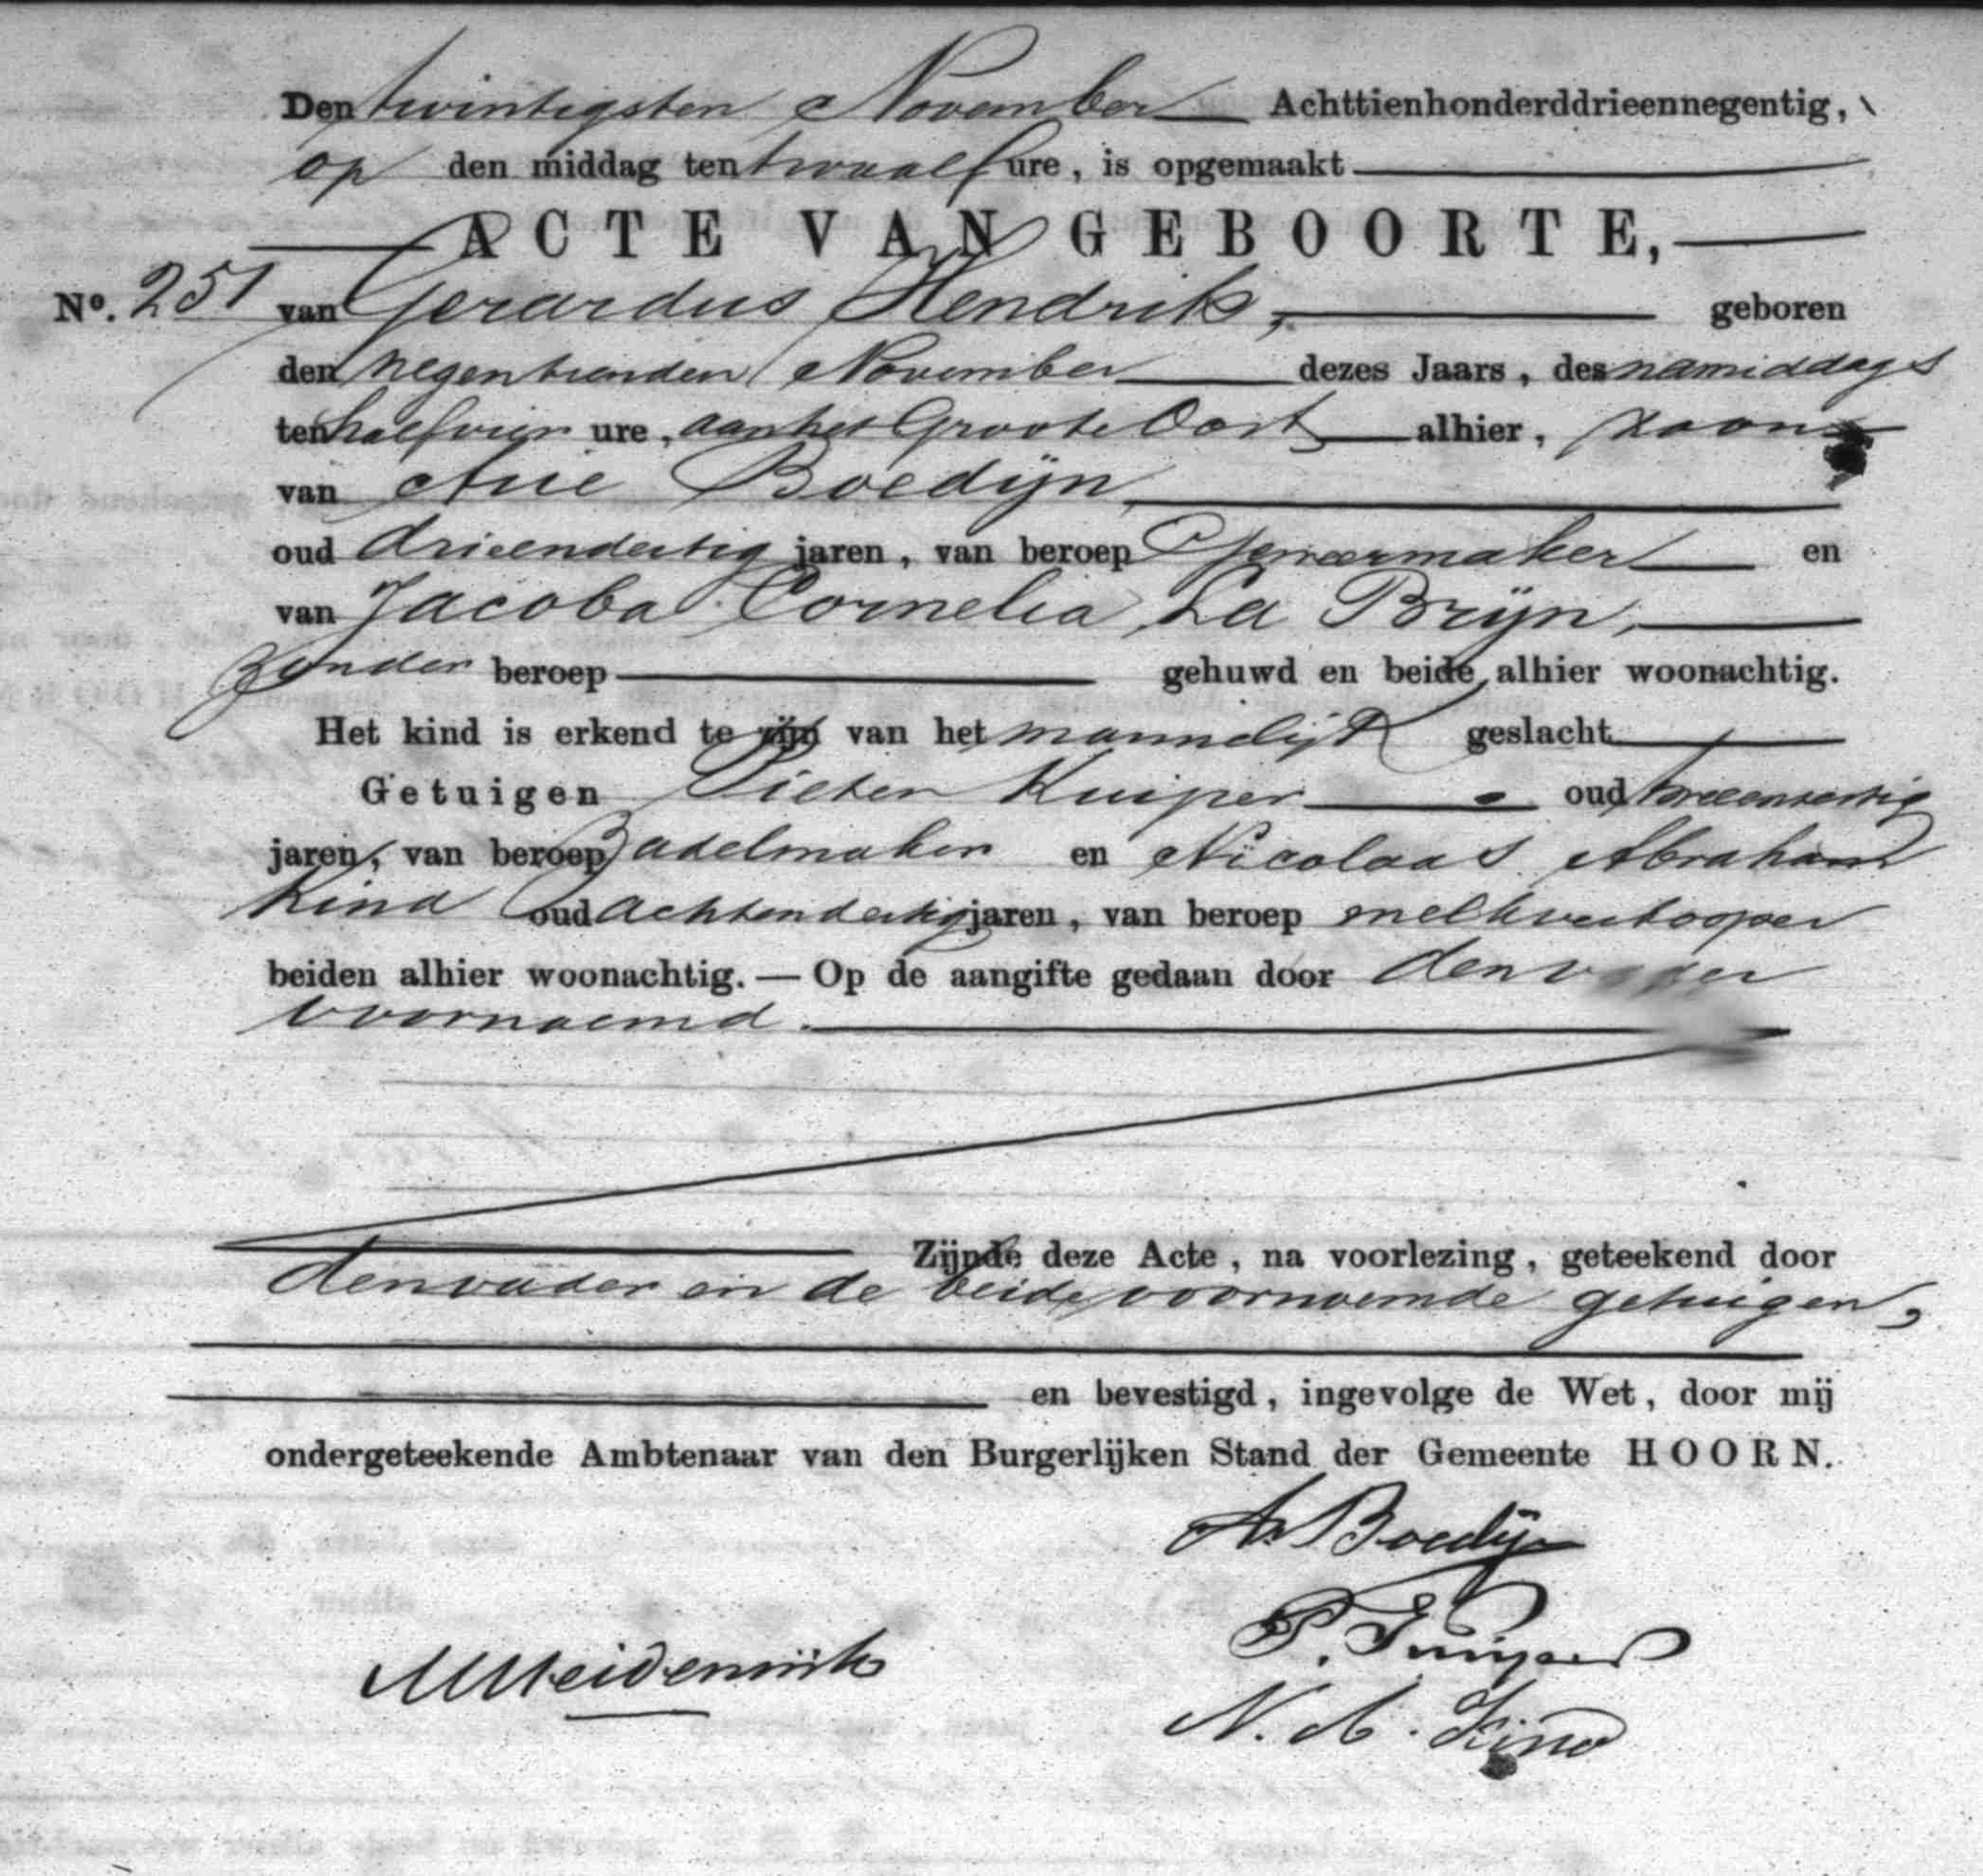 Den twintigsten November Achttienhonderddrieennegentig,
op den middag ten twaalf ure, is opgemaakt
ACTE VAN GEBOORTE,
No. 251 van Gerardus Hendrik, geboren
den negentienden November dezes Jaars, des namiddags
ten half vier ure, aan het Groote Oost alhier, zoon
van Arie Boedijn
oud drieendertig jaren, van beroep Geweermaker en
van Jacoba Cornelia La Brijn,
zonder beroep gehuwd en beide alhier woonachtig.
Het kind is erkend te zijn van het mannelijk geslacht
Getuigen Pieter Kuiper oud
jaren, van beroep Zadelmaker en Nicolaas Abraham
Kind oud achtendertig jaren, van beroep melkverkooper
beiden alhier woonachtig. — Op de aangifte gedaan door den vader
voornoemd.
Zijnde deze Acte, na voorlezing, geteekend door
den vader en de beide voornoemde getuigen,
en bevestigd, ingevolge de Wet, door mij
ondergeteekende Ambtenaar van den Burgerlijken Stand der Gemeente HOORN.
A. Boedijn
P. Kuiper
N. A. Kind